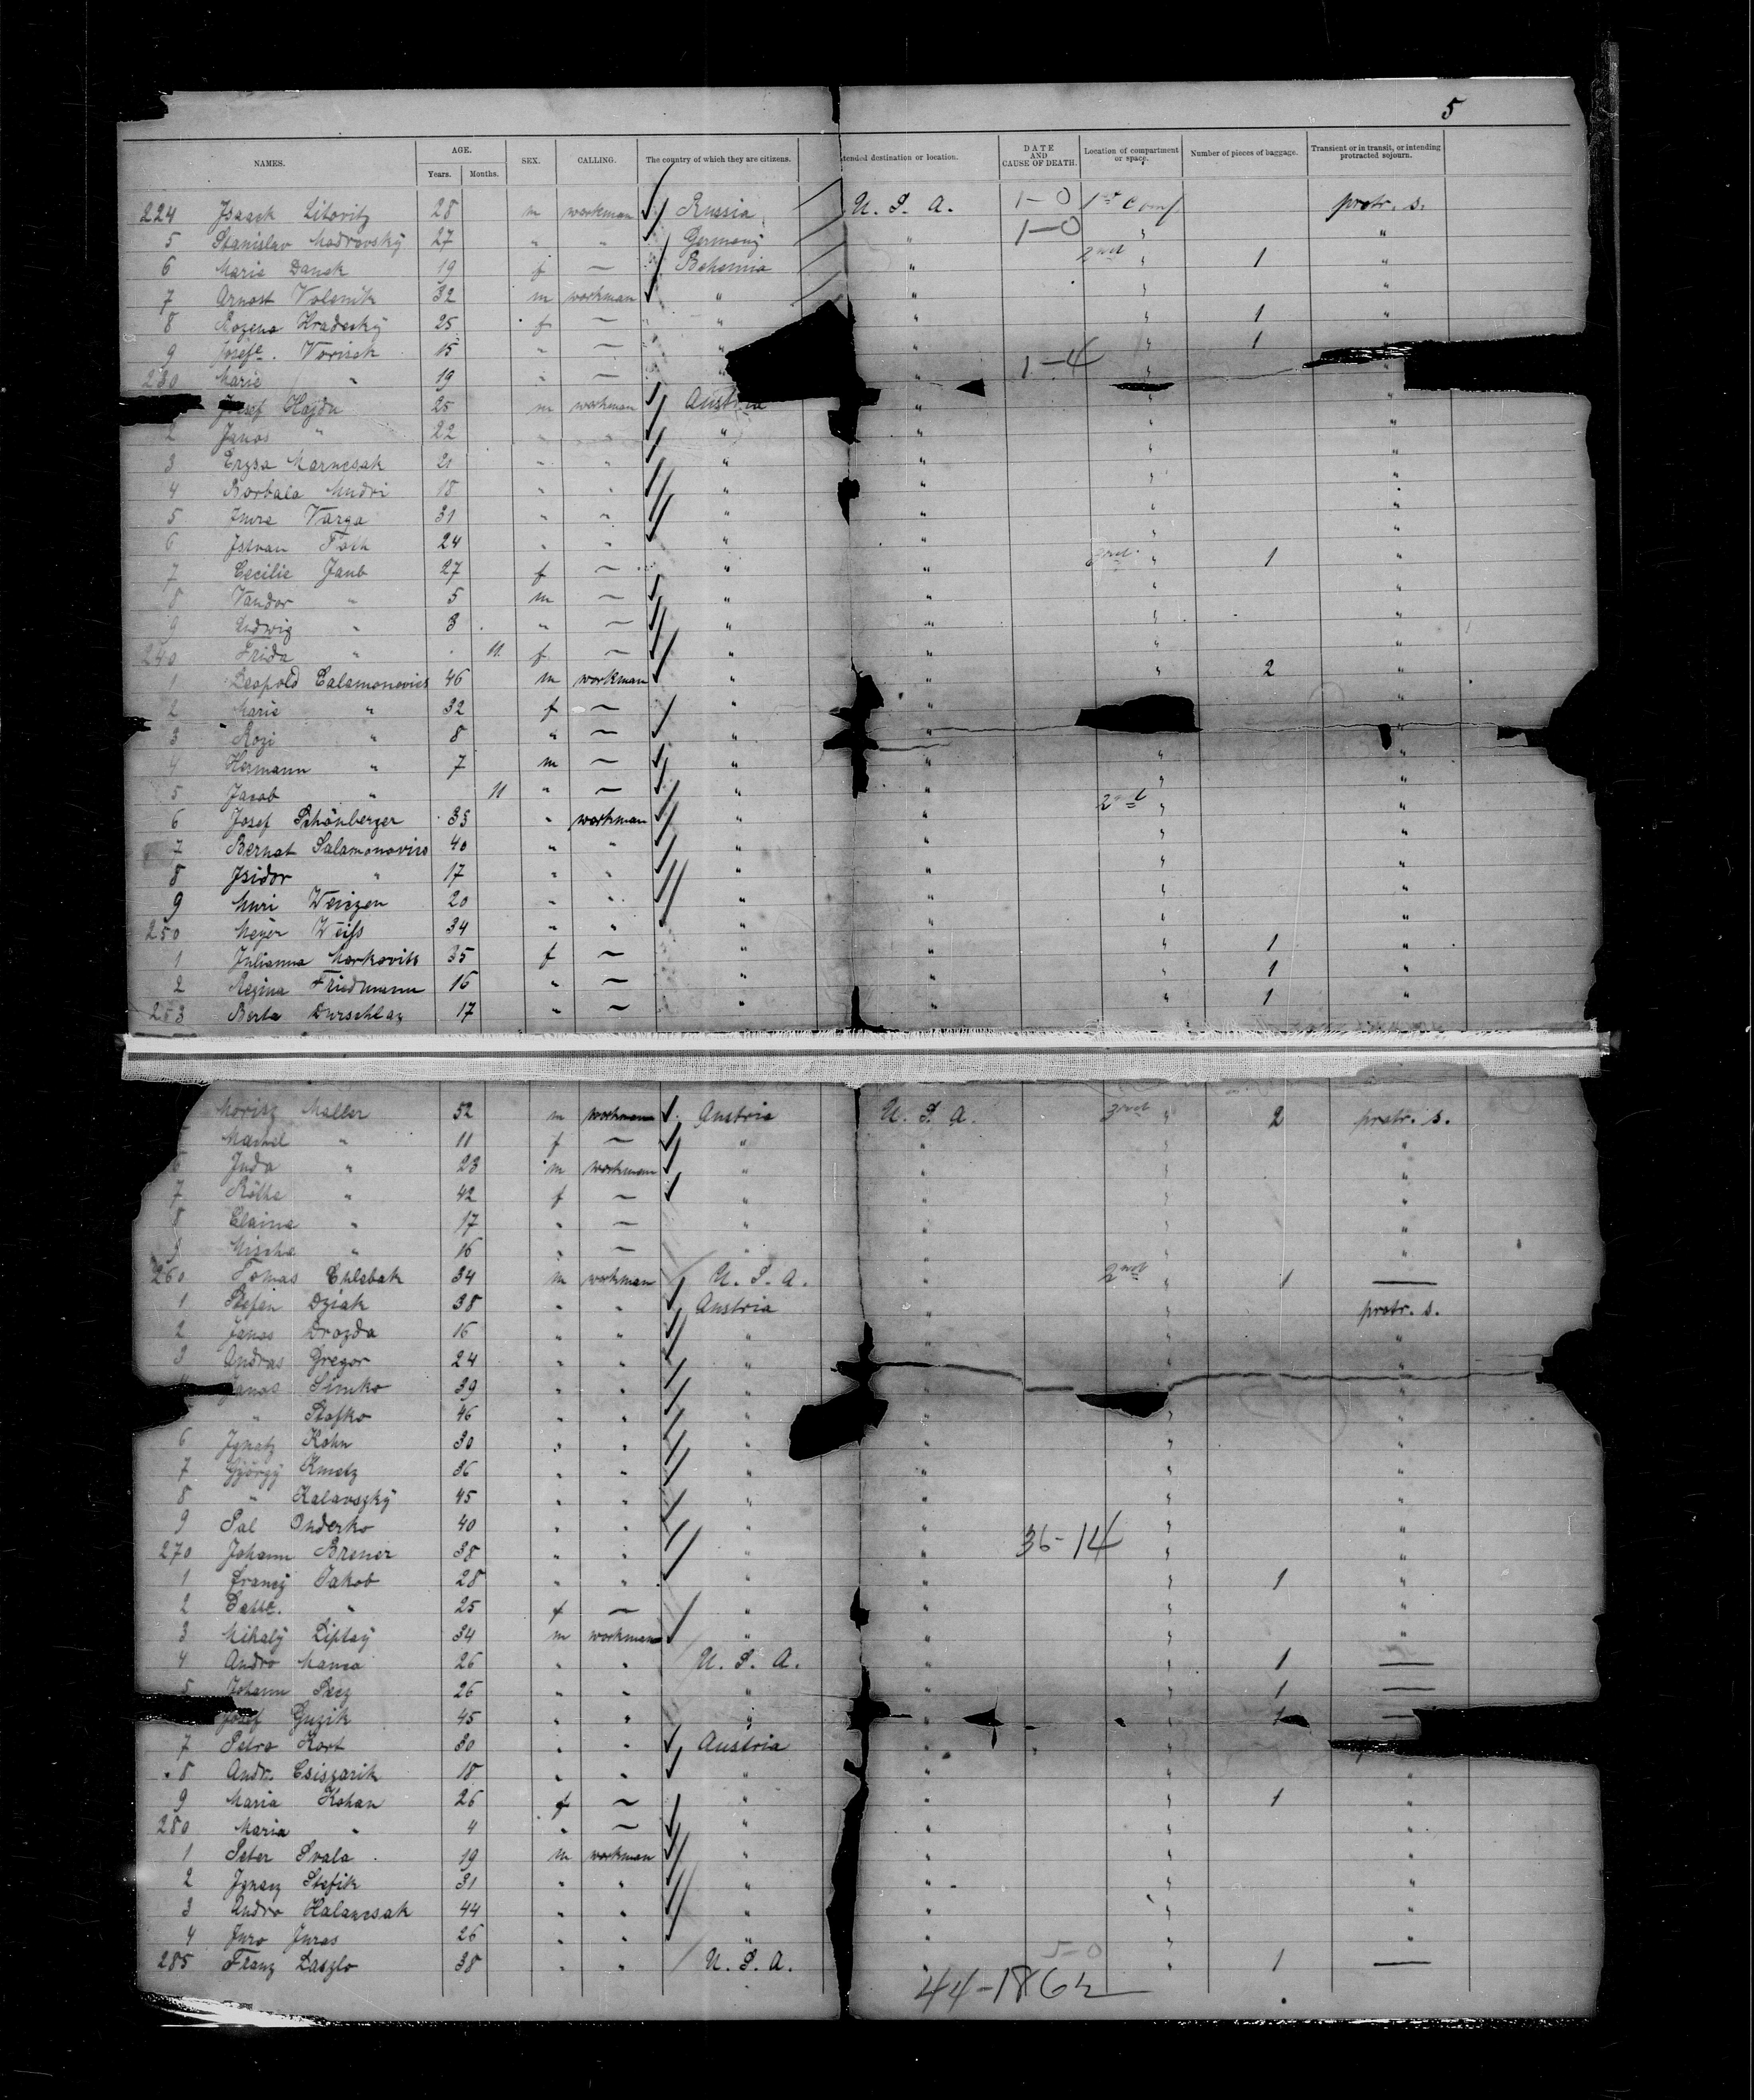 5
NAMES. AGE. Years. Months. SEX. CALLING. The country of which they are citizens. tended destination or location. DATE AND CAUSE OF DEATH. Location of compartment or space. Number of pieces of baggage. Transient or in transit, or intending protracted sojourn.
224 Isaack Litovitz 28 m workman Russia U. S. A. 1-0 1st Comp. protr. s.
5 Stanislav Modrovský 27 " " Germany " 1-0 " "
6 Marie Danek 19 f — Bohemia " 2nd " 1 "
7 Arnost Volenik 32 m workman " " " "
8 Rozena Hradecký 25 f — " " " 1 "
9 Josefe. Vorisek 15 " — " " " 1
230 Marie " 19 " — " " 1-4 " "
Josef Hajdu 25 m workman Austria " " "
2 Janos " 22 " " " " " "
3 Erzsa Marncsak 21 " " " " " "
4 Borbala Mudri 18 " " " " " "
5 Imre Varga 31 " " " " " "
6 Istvan Toth 24 " " " " " "
7 Cecilie Jaub 27 f — " " 3rd " 1 "
8 Vandor " 5 m — " " " "
9 Ludwig " 3 " — " " " "
240 Frida " 11 f — " " " "
1 Leopold Calamonovics 46 m workman " " " 2 "
2 Marie " 32 f — " " "
3 Rozi " 8 " — " " "
4 Hermann " 7 m — " " " "
5 Jacob " 11 " — " " " "
6 Josef Schönberger 33 " workman " " 2nd " "
7 Bernat Salamonovics 40 " " " " " "
8 Isidor " 17 " " " " " "
9 Muri Weiczen 20 " " " " " "
250 Meyer Weiss 34 " " " " " "
1 Julianna Markovits 35 f — " " " 1 "
2 Regina Friedmann 16 " — " " " 1 "
253 Berta Durschlag 17 " — " " " 1 "
Moritz Maller 52 m workman Austria U. S. A. 3rd " 2 protr. s.
" 11 f — " " " "
6 Juda " 23 m workman " " " "
7 " 42 f — " " " "
8 Elaine " 17 " — " " " "
9 " 16 " — " " " "
260 Tomas Chlebak 34 m workman U. S. A. " 2nd " 1 —
1 Stefan Dziak 38 " " Austria " " protr. s.
2 Janos Drozda 16 " " " " " "
3 Andras Gregor 24 " " " " " "
Janos Simko 39 " " " " "
" Stofko 46 " " " " " "
6 Ignatz Kohn 30 " " " " " "
7 György Kmetz 36 " " " " " "
8 " Kalavszký 45 " " " " " "
9 Pal Onderko 40 " " " " " "
270 Johann Brener 38 " " " " 36-14 " "
1 Francz Jakob 28 " " " " " 1 "
2 " 25 f — " " " "
3 Mihaly Liptay 34 m workman " " " "
4 Andro Manca 26 " " U. S. A. " " 1 —
5 Johann 26 " " " " " 1 —
Josef Guzik 45 " " " " " 1 —
7 Petro Kort 30 " " Austria " "
8 Andr. Csiszarik 18 " " " " " "
9 Maria Kohan 26 f — " " " 1 "
280 Maria " 4 " — " " " "
1 Peter Svala 19 m workman " " " "
2 Ignacz Stefik 31 " " " " " "
3 Andro Halamcsak 44 " " " " " "
4 Juro Juras 26 " " " " " "
285 Franz Laszlo 38 " " U. S. A. " 5-0 " 1 —
44-18